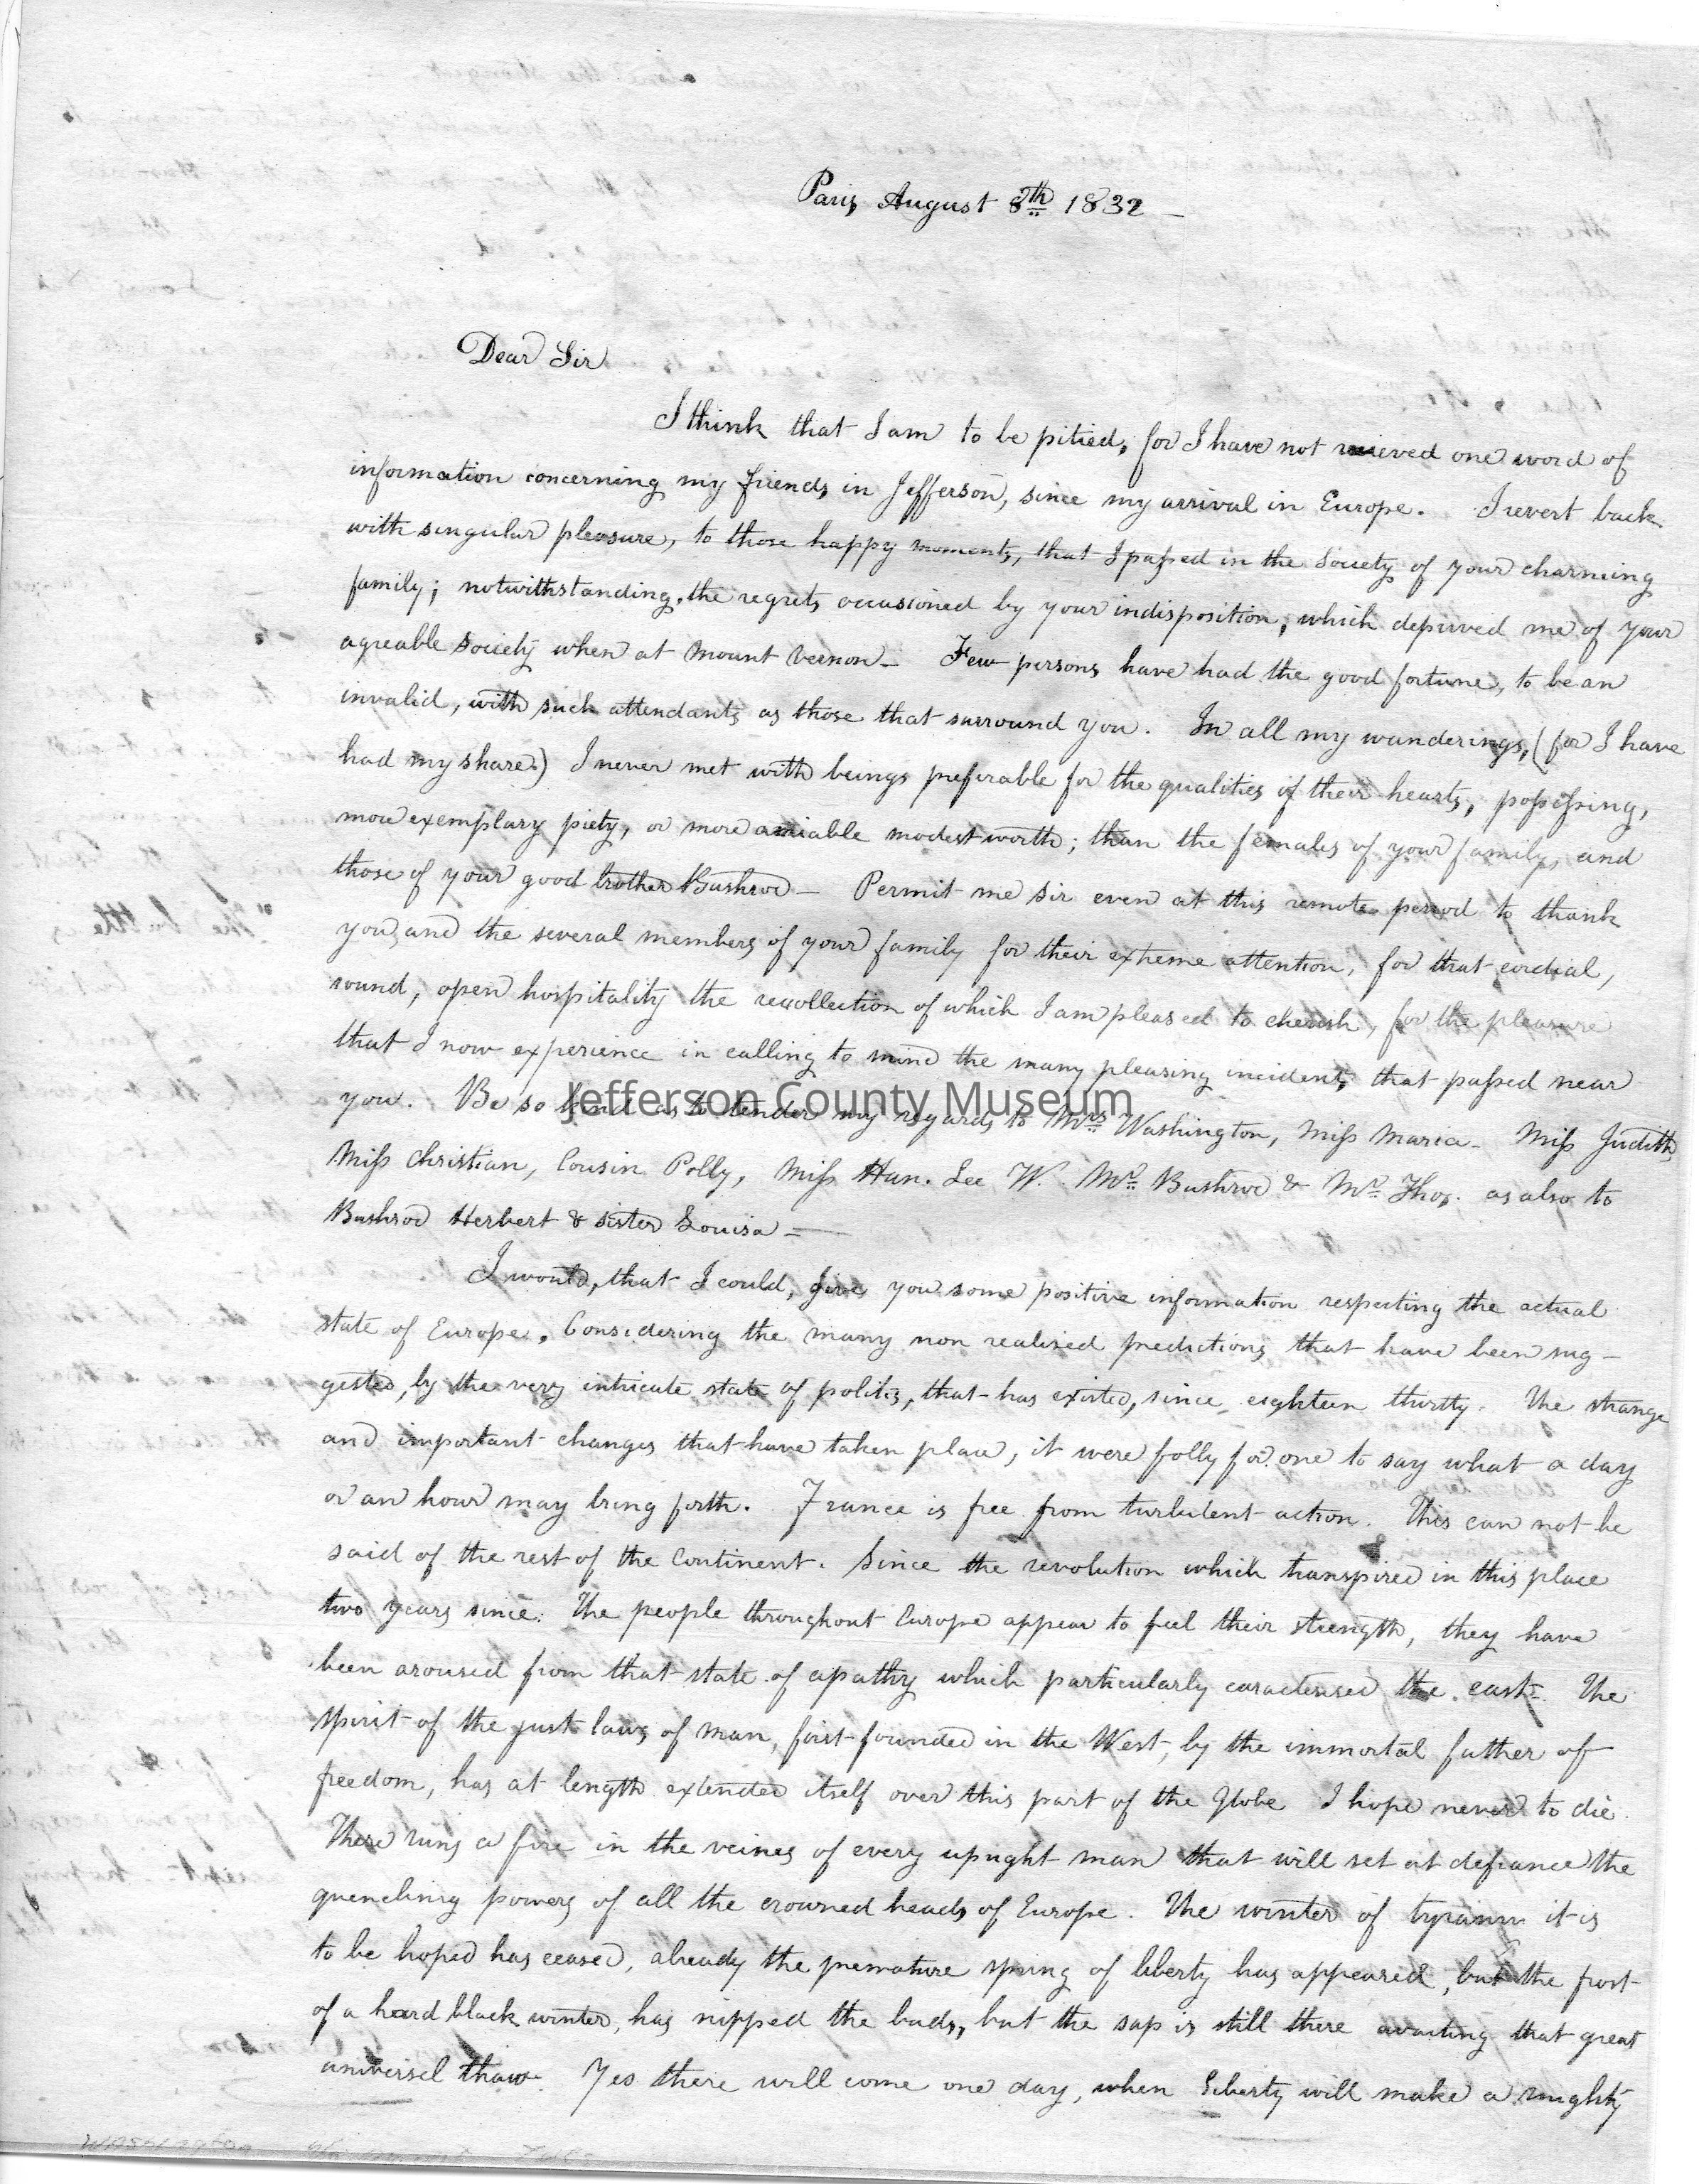 Paris, August 8th 1832 —
Dear Sir
I think that I am to be pitied, for I have not recieved one word of
information concerning my friends in Jefferson, since my arrival in Europe. I revert back
with singular pleasure, to those happy moments, that I passed in the Society of your charming
family; notwithstanding the regrets occasioned by your indisposition, which deprived me of your
agreable society when at Mount Vernon — Few persons have had the good fortune, to be an
invalid, with such attendants as those that surround you. In all my wanderings, (for I have
had my share) I never met with beings preferable for the qualities of their hearts, possessing,
more exemplary piety, or more amiable modest worth; than the females of your family, and
those of your good brother Bushrod — Permit me sir even at this remote period to thank
you, and the several members of your family for their extreme attention, for that cordial,
sound, open hospitality the recollection of which I am pleased to cherish, for the pleasure
that I now experience in calling to mind the many pleasing incidents that passed near
you. Be so kind as to tender my regards to Mrs Washington, Miss Maria — Miss Judith
Jefferson County Museum
Miss Christian, Cousin Polly, Miss Han. Lee W. Mr Bushrod & Mr Thos. as also to
Bushrod Herbert & sister Louisa —
I would, that I could, give you some positive information respecting the actual
state of Europe. Considering the many non realized predictions that have been sug-
gested, by the very intricate state of politics, that has existed, since eighteen thirty. The strange
and important changes that have taken place, it were folly for one to say what a day
or an hour may bring forth. France is free from turbulent action. This can not be
said of the rest of the Continent. Since the revolution which transpired in this place
two years since. The people throughout Europe appear to feel their strength, they have
been aroused from that state of apathy which particularly caracterised the east. The
spirit of the just laws of man, first founded in the West, by the immortal father of
freedom, has at length extended itself over this part of the Globe I hope never to die.
There runs a fire in the veines of every upright man that will set at defiance the
quenching powers of all the crowned heads of Europe. The winter of tyranny it is
to be hoped has ceased, already the premature spring of liberty has appeared, but the frost
of a hard black winter, has nipped the buds, but the sap is still there awaiting that great
universel thaw. Yes there will come one day, when liberty will make a mighty
Washington